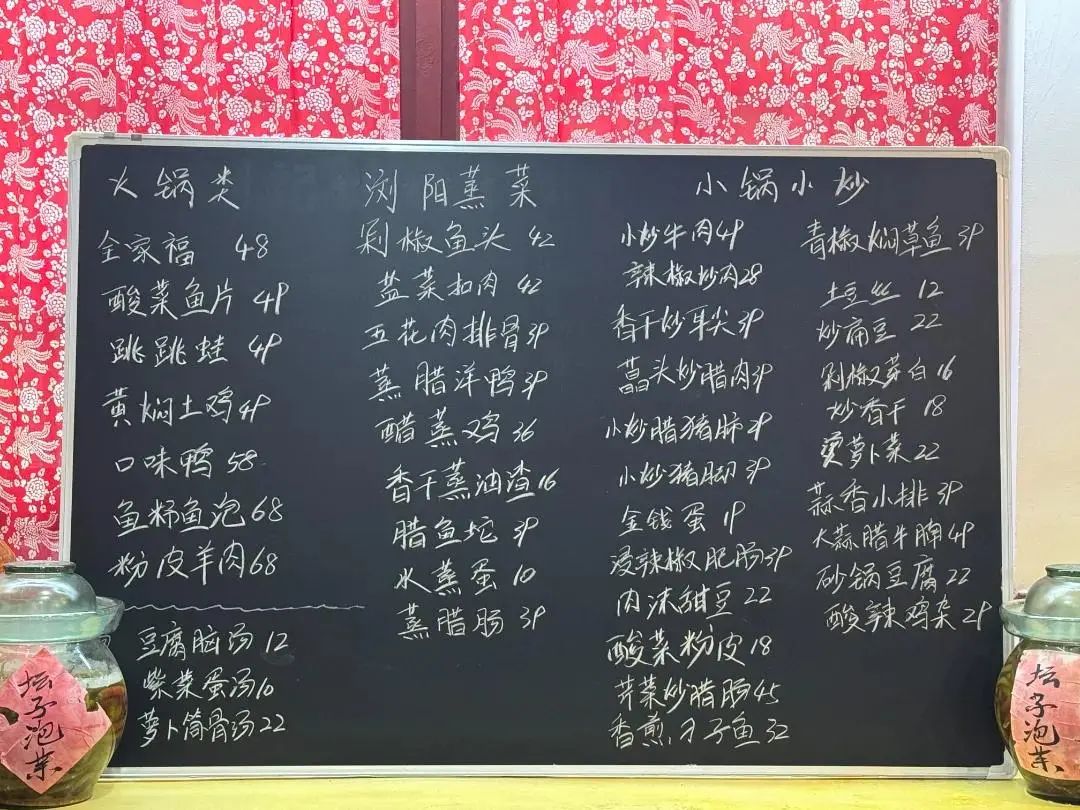 火锅类
全家福 48
酸菜鱼片 49
跳跳蛙 49
黄焖土鸡49
口味鸭 58
鱼籽鱼泡68
粉皮羊肉68
豆腐脑汤 12
紫菜蛋汤10
萝卜筒骨汤22
浏阳蒸菜
剁椒鱼头 42
盐菜扣肉 42
五花肉排骨39
蒸腊洋鸭39
醋蒸鸡 36
香干蒸油渣16
腊鱼坨 39
水蒸蛋 10
蒸腊肠 39
小锅小炒
小炒牛肉49
辣椒炒肉28
香干炒耳尖39
藠头炒腊肉39
小炒腊猪肺29
小炒猪脚39
金钱蛋 19
浸辣椒肥肠39
肉沫甜豆 22
酸菜粉皮18
芹菜炒腊肠45
香煎刁子鱼32
青椒焖草鱼39
土豆丝 12
炒扁豆 22
剁椒芽白16
炒香干 18
萝卜菜22
蒜香小排39
大蒜腊牛腩49
砂锅豆腐22
酸辣鸡杂29
坛子泡菜
坛子泡菜